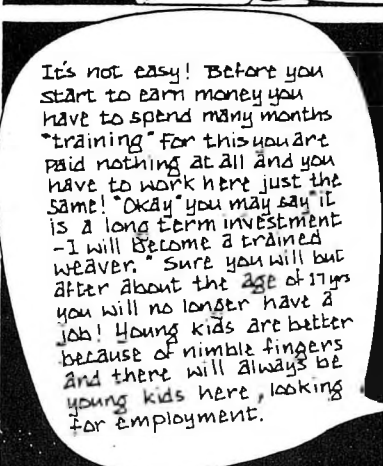 It's not easy! Before you
start to earn money you
have to spend many months
"training" For this you are
paid nothing at all and you
have to work here just the
same! "Okay" you may say "it
is a long term investment
-I will become a trained
weaver." Sure you will but
after about the age of 17 yrs
you will no longer have a
job! Young kids are better
because of nimble fingers
and there will always be
young kids here, looking
for employment.